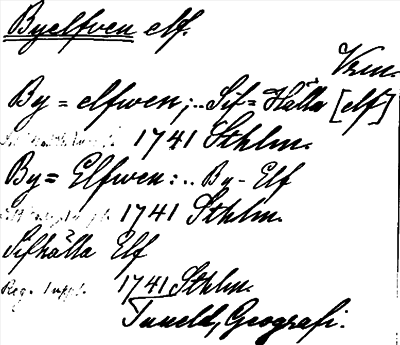 Byelfven elf.
Vrm.
By=elfwen;.. Sif=Hälla [elf]
1741 Sthlm.
By=Elfwen:.. By-Elf
1741 Sthlm.
Sifhälla Elf
Reg. 1 uppl. 1741 Sthlm.
Tuneld, Geografi.